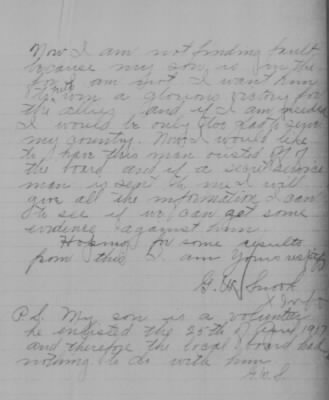 Now I am not finding fault
because my son is in the
for I am not I want him
to help win a glorious victory for
the allies and if I am needed
I would be only too glad to serve
my country. Now I would like
to have this man ousted of
the board and if a secret service
man is sent to me I will
give all the information I can
to see if we can get some
evidence against him
Hoping for some results
from this I am yours respectfully
G. W. Snook
P.S. My son is a volunteer
he enlisted the 25th of April 1917
and therefore the local board had
nothing to do with him
G.W.S.